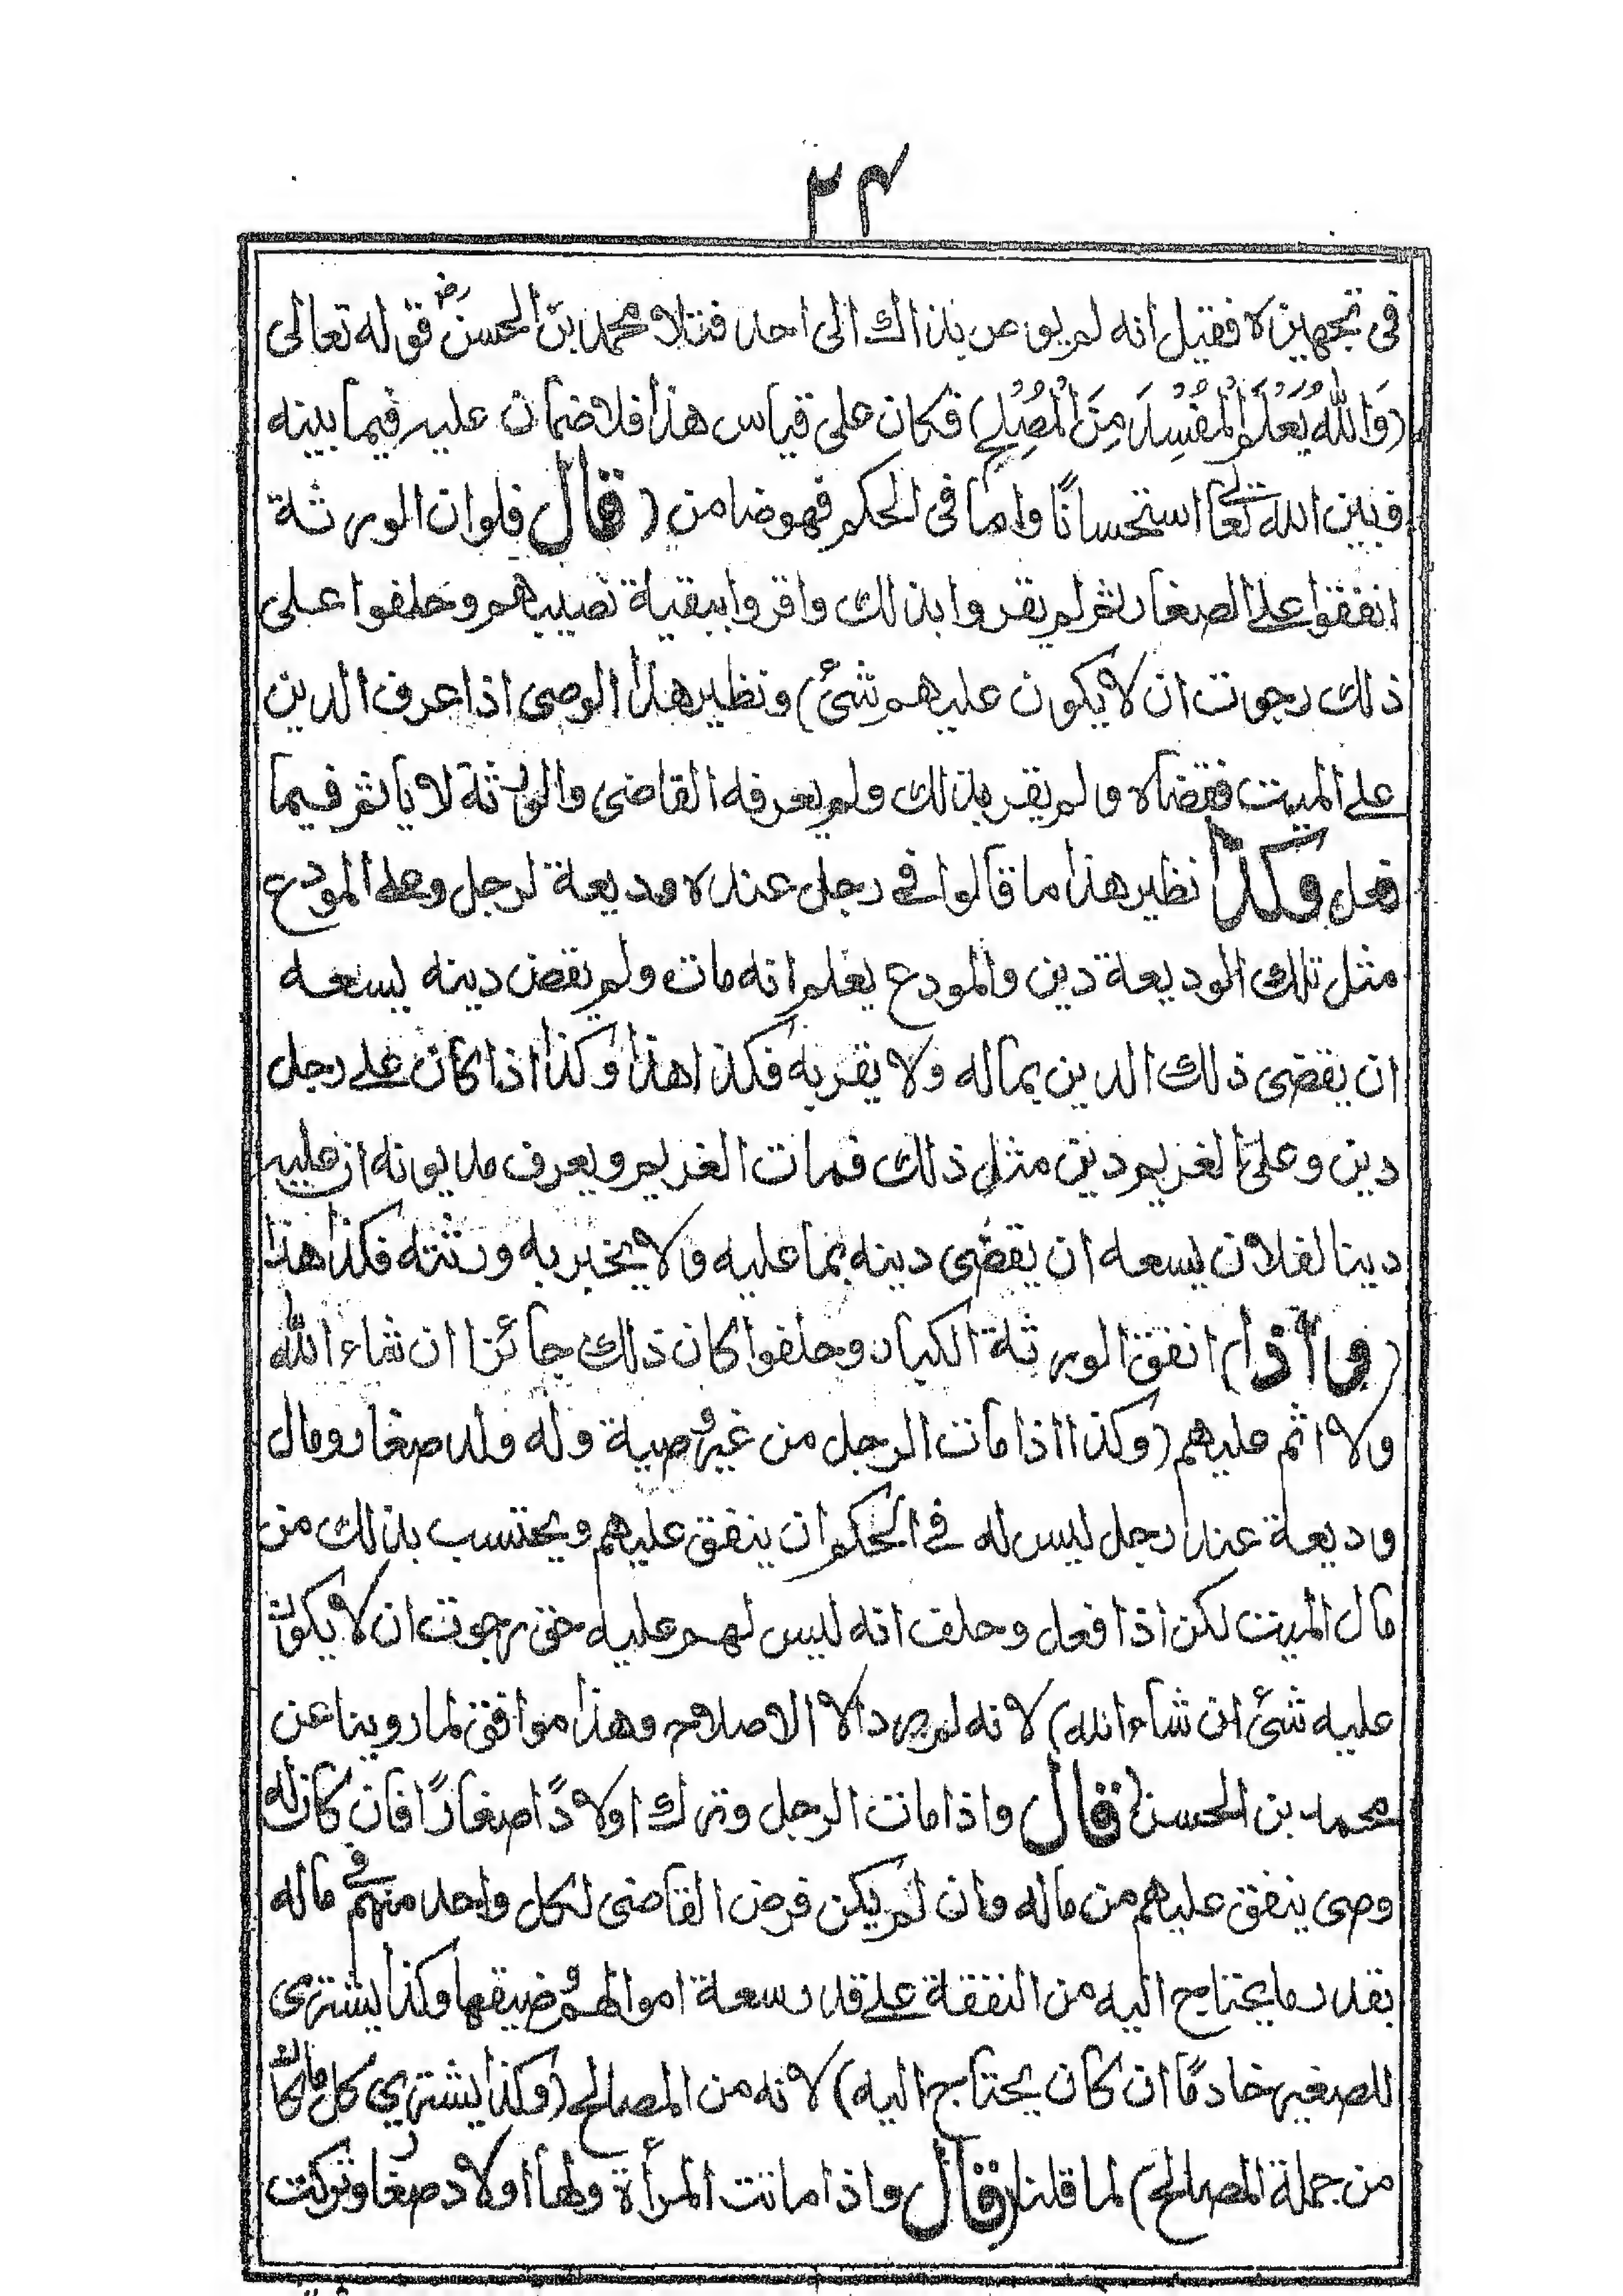 ٢٤
فى تجهيزه فقيل انه لم يوص بذاك الى احد فتلا محمد بن الحسنؒ قوله تعالى
(وَاللّٰهُ يَعْلَمُ الْمُفْسِدَ مِنَ الْمُصْلِحِ) فكان على قياس هذا فلا ضمان عليه فيما بينه
فبين الله تعالى استحسانًا واما فى الحكم فهو ضامن (قال فلو ان الورثة
انفقوا على الصغار ثم لم يقروا بذلك واقروا ببقية نصيبهم وحلفوا على
ذلك رجوت ان لا يكون عليهم شئ) ونظير هذا الوصى اذا عرف الدين
على الميت فقضاه ولم يقر بذلك ولم يعرفه القاضى والورثة لا يأثم فيما
فعل وكذا نظير هذا ما قالوا فى رجل عنده وديعة لرجل وعلى المودع
مثل تلك الوديعة دين والمودع يعلم انه مات ولم يقض دينه يسعه
ان يقضى ذلك الدين بماله ولا يقر به فكذا هذا وكذا اذا كان على رجل
دين وعلى الغريم دين مثل ذلك فمات الغريم ويعرف مديونه ان عليه
دينا لفلان يسعه ان يقضى دينه بما عليه ولا يخبر به ورثته فكذا هذا
(واذا) انفق الورثة الكبار وحلفوا كان ذلك جائزا ان شاء الله
ولا اثم عليهم (وكذا اذا مات الرجل من غير وصية وله ولد صغار ومال
وديعة عند رجل ليس له فى الحكم ان ينفق عليهم ويحتسب بذلك من
مال الميت لكن اذا فعل وحلف انه ليس لهم عليه حق رجوت ان لا يكون
عليه شئ ان شاء الله) لانه لم يرد الا الاصلاح وهذا موافق لما روينا عن
محمد بن الحسن (قال واذا مات الرجل وترك اولادًا صغارًا فان كان له
وصى ينفق عليهم من ماله وان لم يكن فرض القاضى لكل واحد منهم فى ماله
بقدر ما يحتاج اليه من النفقة على قدر سعة اموالهم وضيقها وكذا يشترى
للصغير خادمًا ان كان يحتاج اليه) لانه من المصالح (وكذا يشترى كل ما كان
من جملة المصالح) لما قلنا (قال واذا ماتت المرأة ولها اولاد صغار وتركت